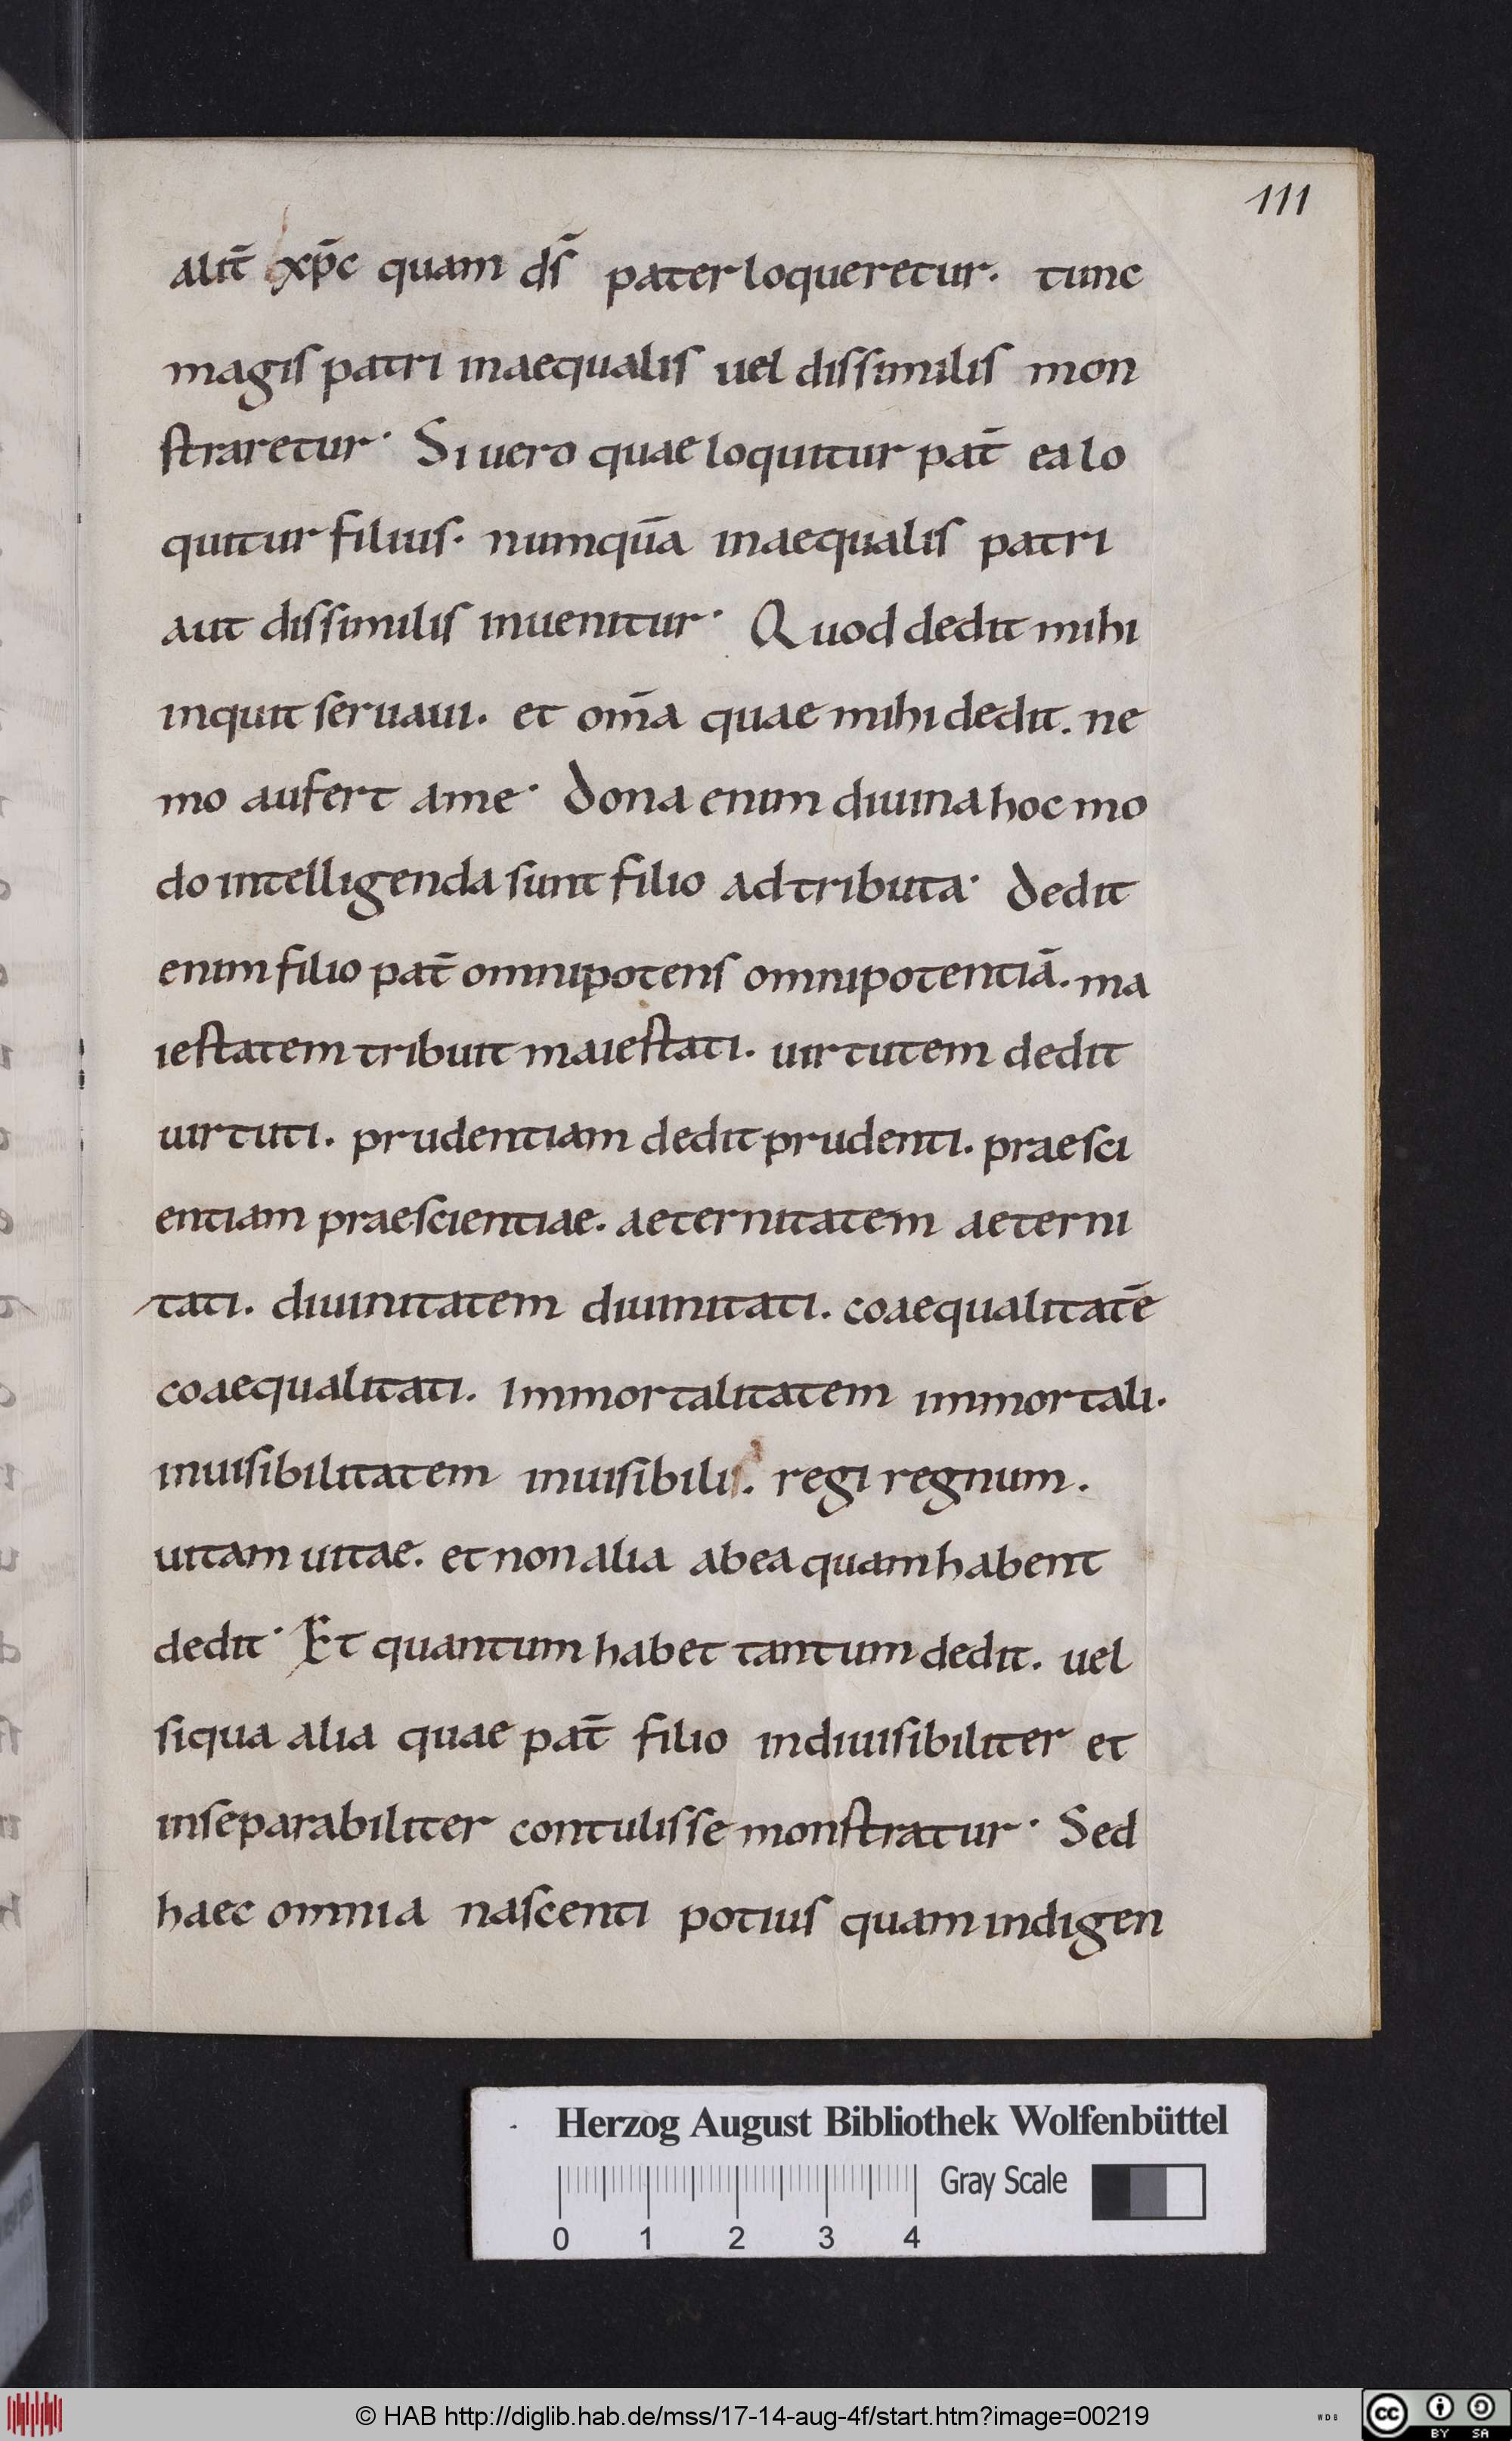 111
alit̄ xp̄c quam dſ̄ pater loqueretur. tunc
magiſ patri inaequaliſ uel diſſimiliſ mon
ſtraretur· Si uero quae loquitur pat̄ ea lo
quitur filiuſ· numquā inaequaliſ patri
aut diſſimiliſ inuenitur· Quod dedit mihi
inquit ſeruaui. et om̄a quae mihi dedit. ne
mo aufert ame· Dona enim diuina hoc mo
do intelligenda ſunt filio adtributa· Dedit
enim filio pat̄ omnipotenſ omnipotentiā. ma
ieſtatem tribuit maieſtati. uirtutem dedit
uirtuti. prudentiam dedit prudenti. praeſci
entiam praeſcientiae. aeternitatem aeterni
tati. diuinitatem diuinitati. coaequalitatē
coaequalitati. Immortalitatem immortali.
inuiſibilitatem inuiſibili. regi regnum.
uitam uitae. et non alia abea quam habent
dedit· Et quantum habet tantum dedit. uel
ſiqua alia quae pat̄ filio indiuiſibiliter et
inſeparabiliter contuliſſe monſtratur· Sed
haec omnia naſcenti potiuſ quam indigen
Herzog August Bibliothek Wolfenbüttel
Gray Scale
0 1 2 3 4
© HAB http://diglib.hab.de/mss/17-14-aug-4f/start.htm?image=00219
WDB
cc BY SA